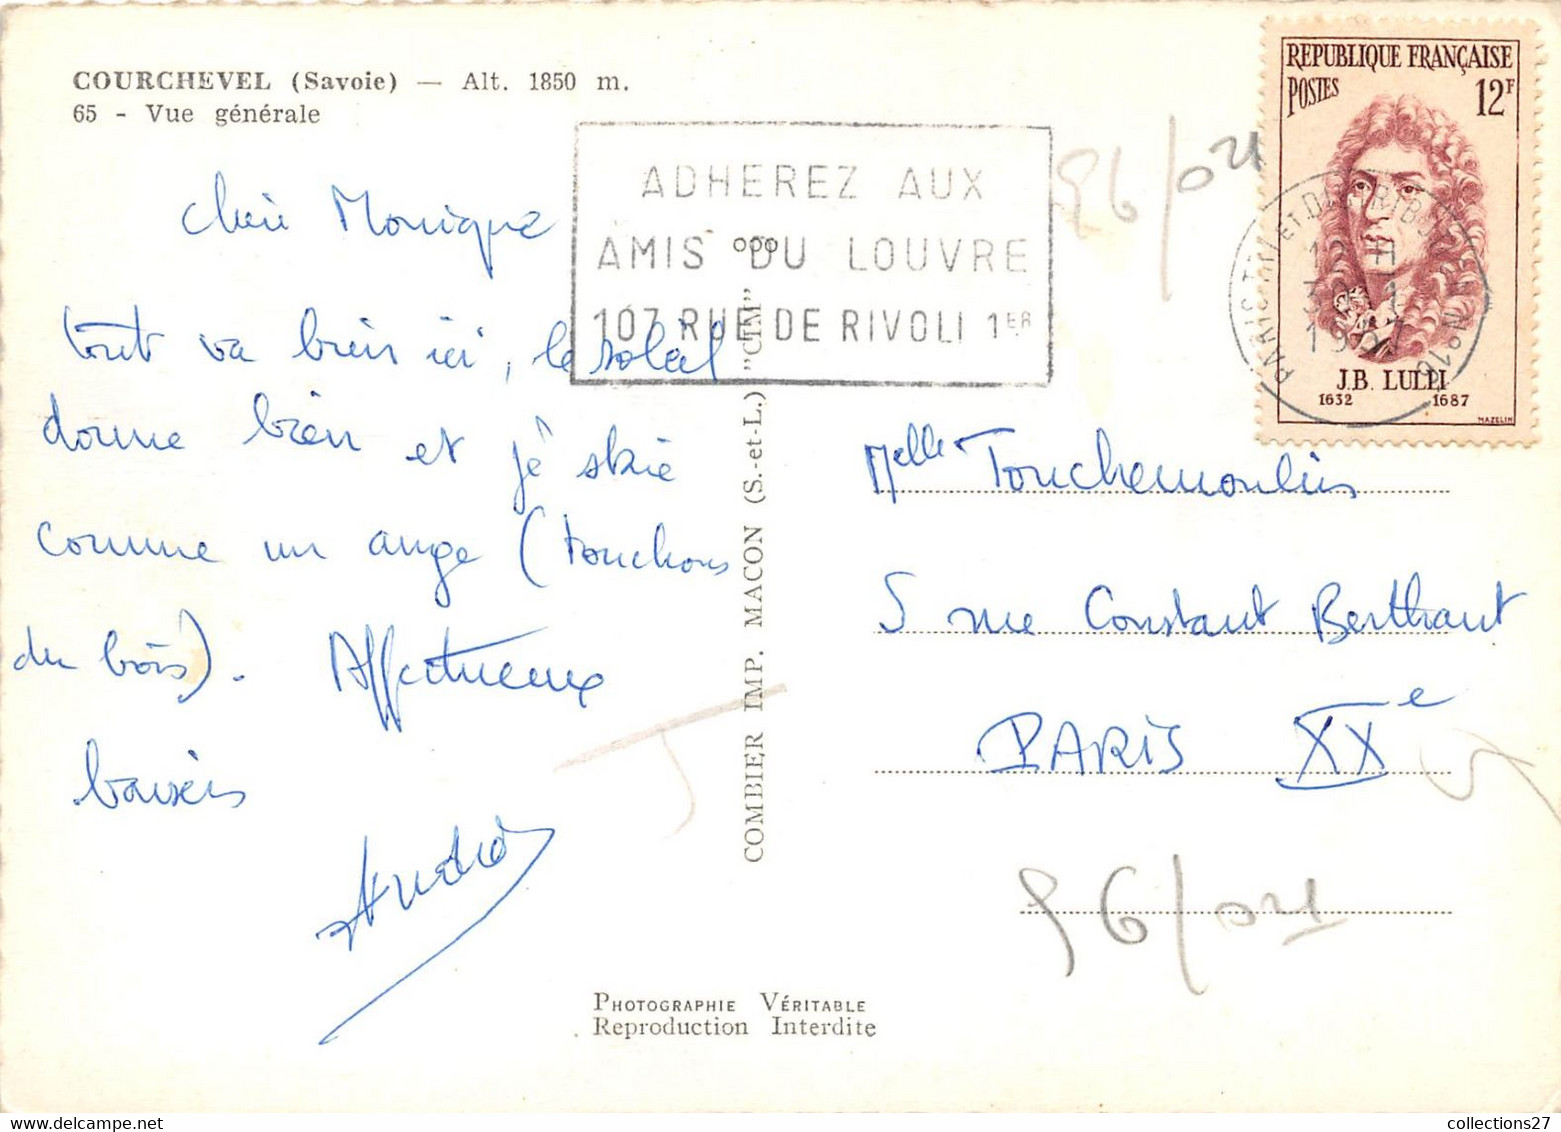 COURCHEVEL (Savoie) — Alt. 1850 m.
65 - Vue générale
chère Monique
tout va bien ici, le soleil
donne bien et je skie
comme un ange (touchons
du bois). Affectueux
baisers
André
ADHEREZ AUX
AMIS DU LOUVRE
107 RUE DE RIVOLI 1ER
COMBIER IMP. MACON (S.-et-L.) "CIM"
REPUBLIQUE FRANÇAISE
POSTES 12F
J.B. LULLI
1632 1687
MAZELIN
12 H
Melle Touchemoulin
5 rue Constant Berthaut
PARIS XXe
96/04
96/04
PHOTOGRAPHIE VÉRITABLE
Reproduction Interdite
collections27